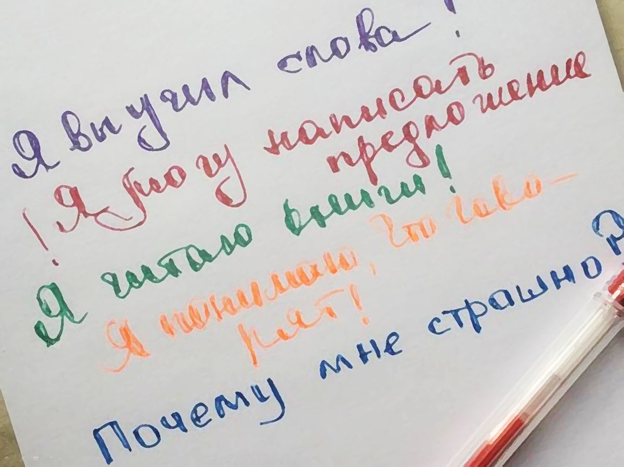 Я выучил слова!
! Я могу написать
предложение
Я читаю книги!
Я понимаю, что гово-
рят!
Почему мне страшно?